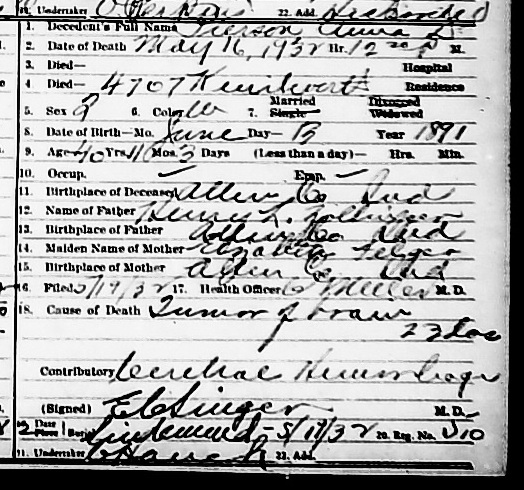 21. Undertaker 22. Add.
1. Decedent's Full Name Pierson Anna L
2. Date of Death May 16, 1932 Hr. 12 M.
3. Died— Hospital
4. Died— 4707 Kenilworth Residence
5. Sex ♀ 6. Col W 7. Married Single Divorced Widowed
8. Date of Birth—Mo. June Day— 13 Year 1891
9. Age 40 Yrs. 11 Mos. 3 Days (Less than a day)— Hrs. Min.
10. Occup. ✓ Emp. ✓
11. Birthplace of Deceased Allen Co Ind
12. Name of Father Henry L. Zollinger
13. Birthplace of Father Allen Co Ind
14. Maiden Name of Mother Elizabeth
15. Birthplace of Mother Allen Co Ind
16. Filed 5/17/32 17. Health Officer Miller M. D.
18. Cause of Death Tumor of brain
Contributory Cerebral Hemorrhage
(Signed) E C Singer M. D.
19. Date Place Burial Lindenwood - 5/19/32 20. Reg. No. 510
21. Undertaker 22. Add.